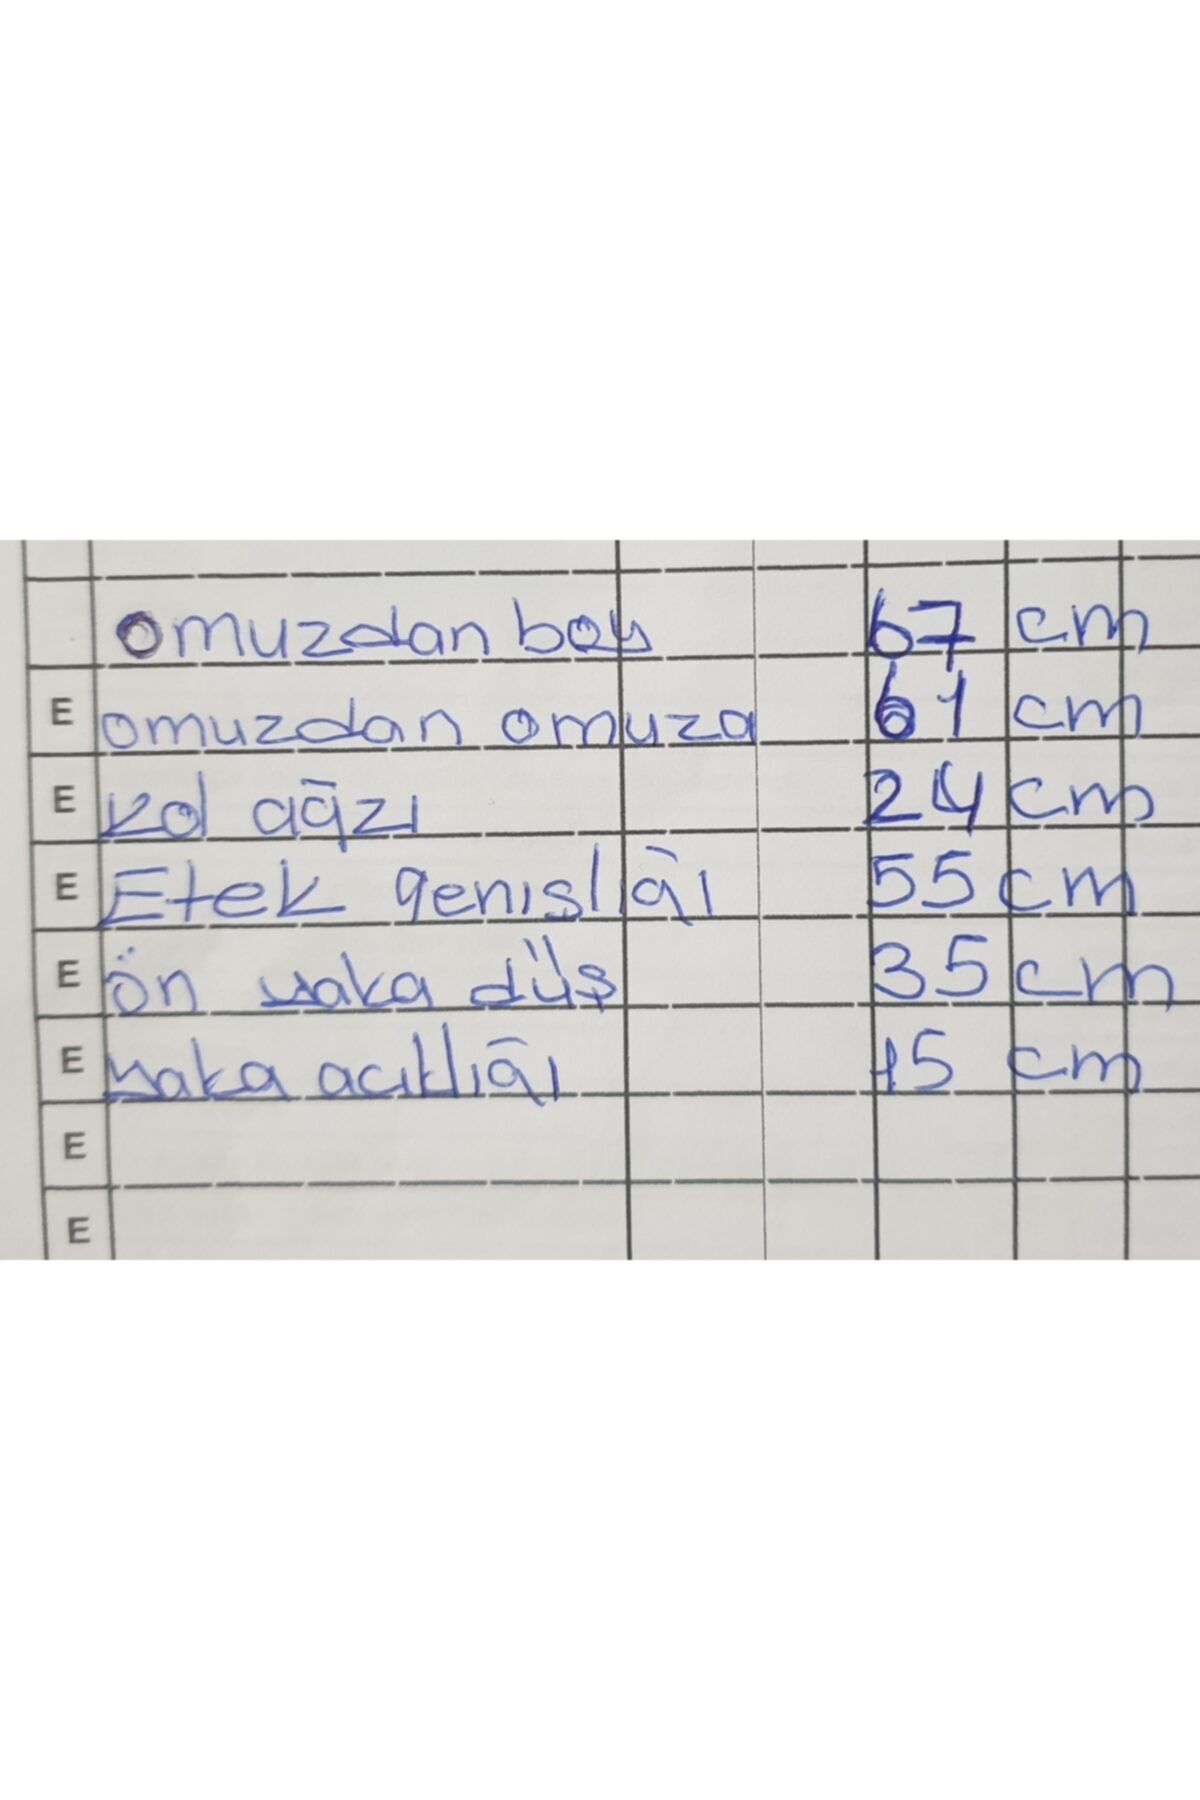 omuzdan boy 67 cm
E omuzdan omuza 61 cm
E kol ağzı 24 cm
E Etek genışlığı 55 cm
E ön yaka düş 35 cm
E yaka acıklığı 15 cm
E
E